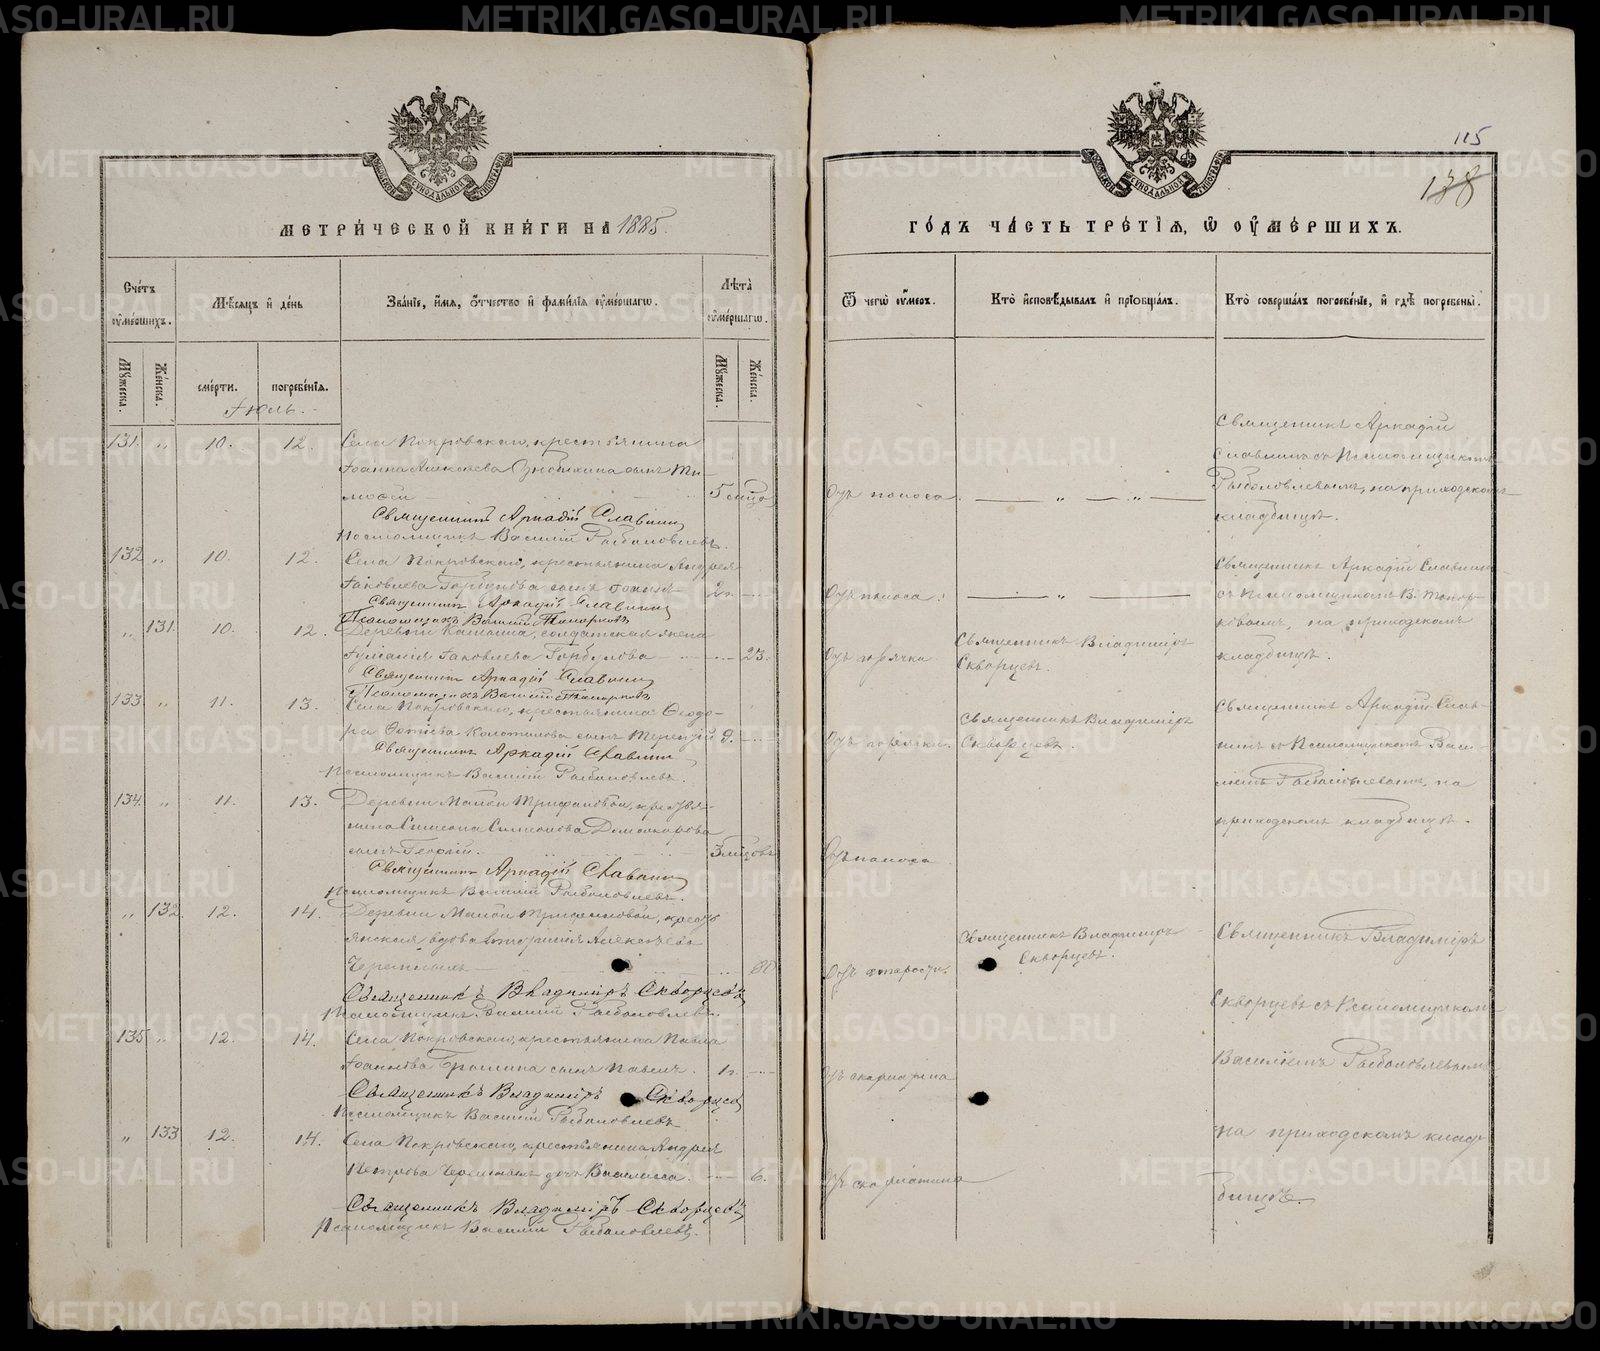 115
138
МЕТРИ́ЧЕСКОЙ КНИ́ГИ НА 1885
ГО́ДЪ ЧА́СТЬ ТРЕ́ТІЯ, Ѿ ОУМЕ́РШИХЪ.
Сче́тъ оуме́ршихъ.
Мѣсяцъ и де́нь
Зва́ніе, и́мя, о́тчество и фами́лія оуме́ршагѡ.
Лѣта̀ оуме́ршагѡ.
Му́жеска.
Же́нска.
сме́рти.
погребе́нія.
Му́жеска.
Же́нска.
Ѿ чегѡ̀ оу́меръ.
Кто̀ исповѣ́дывалъ и пріобща́лъ.
Кто̀ соверша́лъ погребе́ніе, и гдѣ̀ погребены̀.
Іюль.
131. „ 10. 12. Села Покровскаго, крестьянина
Іоанна Алексѣева сынъ Ти-
мофей 5 мѣсяц
Священникъ Аркадій Славнинъ
Псаломщикъ Василій Рыболовлевъ.
Отъ поноса.
Священникъ Аркадій
Славнинъ съ Псаломщикомъ
Рыболовлевымъ, на приходскомъ
кладбищѣ.
132 „ 10. 12. Села Покровскаго, крестьянина Андрея
Іаковлева Горбунова сынъ 2
Священникъ Аркадій Славнинъ
Псаломщикъ Василій Топорковъ
Отъ поноса.
Священникъ Аркадій Славнинъ
съ Псаломщикомъ В. Топор-
ковымъ, на приходскомъ
кладбищѣ.
„ 131. 10. 12. Деревни солдатская жена
Іаковлева Горбунова 23.
Священникъ Аркадій Славнинъ
Псаломщикъ Василій Топорковъ
Отъ горячки
Священникъ Владиміръ
Скворцевъ.
133. „ 11. 13. Села Покровскаго, крестьянина Ѳеодо-
ра сынъ Терентій 9.
Священникъ Аркадій Славнинъ
Псаломщикъ Василій Рыболовлевъ.
Отъ горячки.
Священникъ Владиміръ
Скворцевъ.
Священникъ Аркадій Слав-
нинъ съ Псаломщикомъ Васи-
ліемъ Рыболовлевымъ, на
приходскомъ кладбищѣ.
134. „ 11. 13. Деревни Малой Трифановой, крестья-
нина Симеона Симеонова
сынъ Георгій. 3 мѣсцовъ
Священникъ Аркадій Славнинъ
Псаломщикъ Василій Рыболовлевъ.
Отъ поноса
„ 132. 12. 14. Деревни Малой Трифановой, кресть
янская вдова Алексѣева
Черемныхъ
Священникъ Владиміръ Скворцевъ
Псаломщикъ Василій Рыболовлевъ.
Отъ старости.
Священникъ Владиміръ
Скворцевъ.
Священникъ Владиміръ
Скворцевъ съ Псаломщикомъ
Василіемъ Рыболовлевымъ
на приходскомъ клад-
бищѣ.
135 „ 12. 14. Села Покровскаго, крестьянина Павла
Іоаннова сынъ Павелъ. 1
Священникъ Владиміръ Скворцевъ
Псаломщикъ Василій Рыболовлевъ
Отъ скарлатина
„ 133 12. 14. Села Покровскаго, крестьянина Андрея
Петрова Черемныхъ дочь Василисса. 6.
Священникъ Владиміръ Скворцевъ
Псаломщикъ Василій Рыболовлевъ.
Отъ скарлатина
METRIKI.GASO-URAL.RU